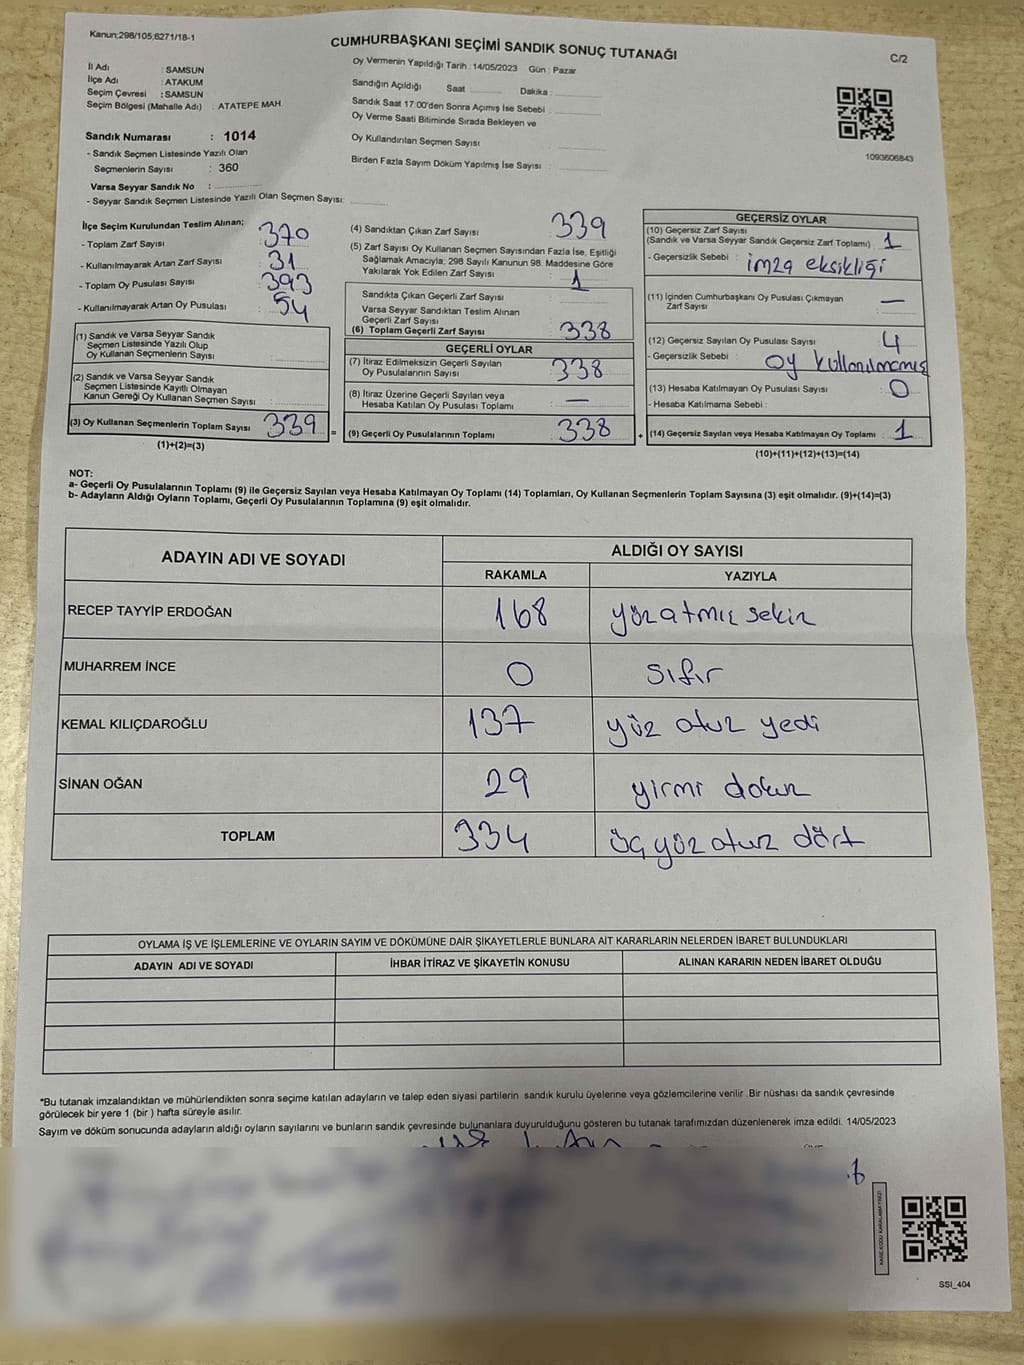 Kanun;298/105;6271/18-1
CUMHURBAŞKANI SEÇİMİ SANDIK SONUÇ TUTANAĞI
C/2
İl Adı : SAMSUN
İlçe Adı : ATAKUM
Seçim Çevresi : SAMSUN
Seçim Bölgesi (Mahalle Adı) : ATATEPE MAH.
Sandık Numarası : 1014
- Sandık Seçmen Listesinde Yazılı Olan
Seçmenlerin Sayısı : 360
Varsa Seyyar Sandık No :
- Seyyar Sandık Seçmen Listesinde Yazılı Olan Seçmen Sayısı:
Oy Vermenin Yapıldığı Tarih : 14/05/2023 Gün : Pazar
Sandığın Açıldığı Saat Dakika :
Sandık Saat 17:00'den Sonra Açımış İse Sebebi :
Oy Verme Saati Bitiminde Sırada Bekleyen ve
Oy Kullandırılan Seçmen Sayısı :
Birden Fazla Sayım Döküm Yapılmış İse Sayısı :
1093606843
İlçe Seçim Kurulundan Teslim Alınan;
- Toplam Zarf Sayısı : 370
- Kullanılmayarak Artan Zarf Sayısı : 31
- Toplam Oy Pusulası Sayısı : 393
- Kullanılmayarak Artan Oy Pusulası : 54
(1) Sandık ve Varsa Seyyar Sandık
Seçmen Listesinde Yazılı Olup
Oy Kullanan Seçmenlerin Sayısı :
(2) Sandık ve Varsa Seyyar Sandık
Seçmen Listesinde Kayıtlı Olmayan
Kanun Gereği Oy Kullanan Seçmen Sayısı :
(3) Oy Kullanan Seçmenlerin Toplam Sayısı : 339
(1)+(2)=(3)
=
(4) Sandıktan Çıkan Zarf Sayısı : 339
(5) Zarf Sayısı Oy Kullanan Seçmen Sayısından Fazla İse, Eşitliği
Sağlamak Amacıyla; 298 Sayılı Kanunun 98. Maddesine Göre
Yakılarak Yok Edilen Zarf Sayısı : 1
Sandıkta Çıkan Geçerli Zarf Sayısı :
Varsa Seyyar Sandıktan Teslim Alınan
Geçerli Zarf Sayısı :
(6) Toplam Geçerli Zarf Sayısı : 338
GEÇERLİ OYLAR
(7) İtiraz Edilmeksizin Geçerli Sayılan
Oy Pusulalarının Sayısı : 338
(8) İtiraz Üzerine Geçerli Sayılan veya
Hesaba Katılan Oy Pusulası Toplamı : —
(9) Geçerli Oy Pusulalarının Toplamı : 338
+
GEÇERSİZ OYLAR
(10) Geçersiz Zarf Sayısı
(Sandık ve Varsa Seyyar Sandık Geçersiz Zarf Toplamı) : 1
- Geçersizlik Sebebi : imza eksikliği
(11) İçinden Cumhurbaşkanı Oy Pusulası Çıkmayan
Zarf Sayısı : —
(12) Geçersiz Sayılan Oy Pusulası Sayısı : 4
- Geçersizlik Sebebi : oy kullanılmamış
(13) Hesaba Katılmayan Oy Pusulası Sayısı : 0
- Hesaba Katılmama Sebebi :
(14) Geçersiz Sayılan veya Hesaba Katılmayan Oy Toplamı : 1
(10)+(11)+(12)+(13)=(14)
NOT:
a- Geçerli Oy Pusulalarının Toplamı (9) ile Geçersiz Sayılan veya Hesaba Katılmayan Oy Toplamı (14) Toplamları, Oy Kullanan Seçmenlerin Toplam Sayısına (3) eşit olmalıdır. (9)+(14)=(3)
b- Adayların Aldığı Oyların Toplamı, Geçerli Oy Pusulalarının Toplamına (9) eşit olmalıdır.
ADAYIN ADI VE SOYADI
ALDIĞI OY SAYISI
RAKAMLA YAZIYLA
RECEP TAYYİP ERDOĞAN 168 yüzatmış sekiz
MUHARREM İNCE 0 sıfır
KEMAL KILIÇDAROĞLU 137 yüz otuz yedi
SİNAN OĞAN 29 yirmi dokuz
TOPLAM 334 üçyüz otuz dört
OYLAMA İŞ VE İŞLEMLERİNE VE OYLARIN SAYIM VE DÖKÜMÜNE DAİR ŞİKAYETLERLE BUNLARA AİT KARARLARIN NELERDEN İBARET BULUNDUKLARI
ADAYIN ADI VE SOYADI İHBAR İTİRAZ VE ŞİKAYETİN KONUSU ALINAN KARARIN NEDEN İBARET OLDUĞU
*Bu tutanak imzalandıktan ve mühürlendikten sonra seçime katılan adayların ve talep eden siyasi partilerin sandık kurulu üyelerine veya gözlemcilerine verilir .Bir nüshası da sandık çevresinde
görülecek bir yere 1 (bir ) hafta süreyle asılır.
Sayım ve döküm sonucunda adayların aldığı oyların sayılarını ve bunların sandık çevresinde bulunanlara duyurulduğunu gösteren bu tutanak tarafımızdan düzenlenerek imza edildi. 14/05/2023
KARE KODU KARALAMAYINIZ!
SSI_404